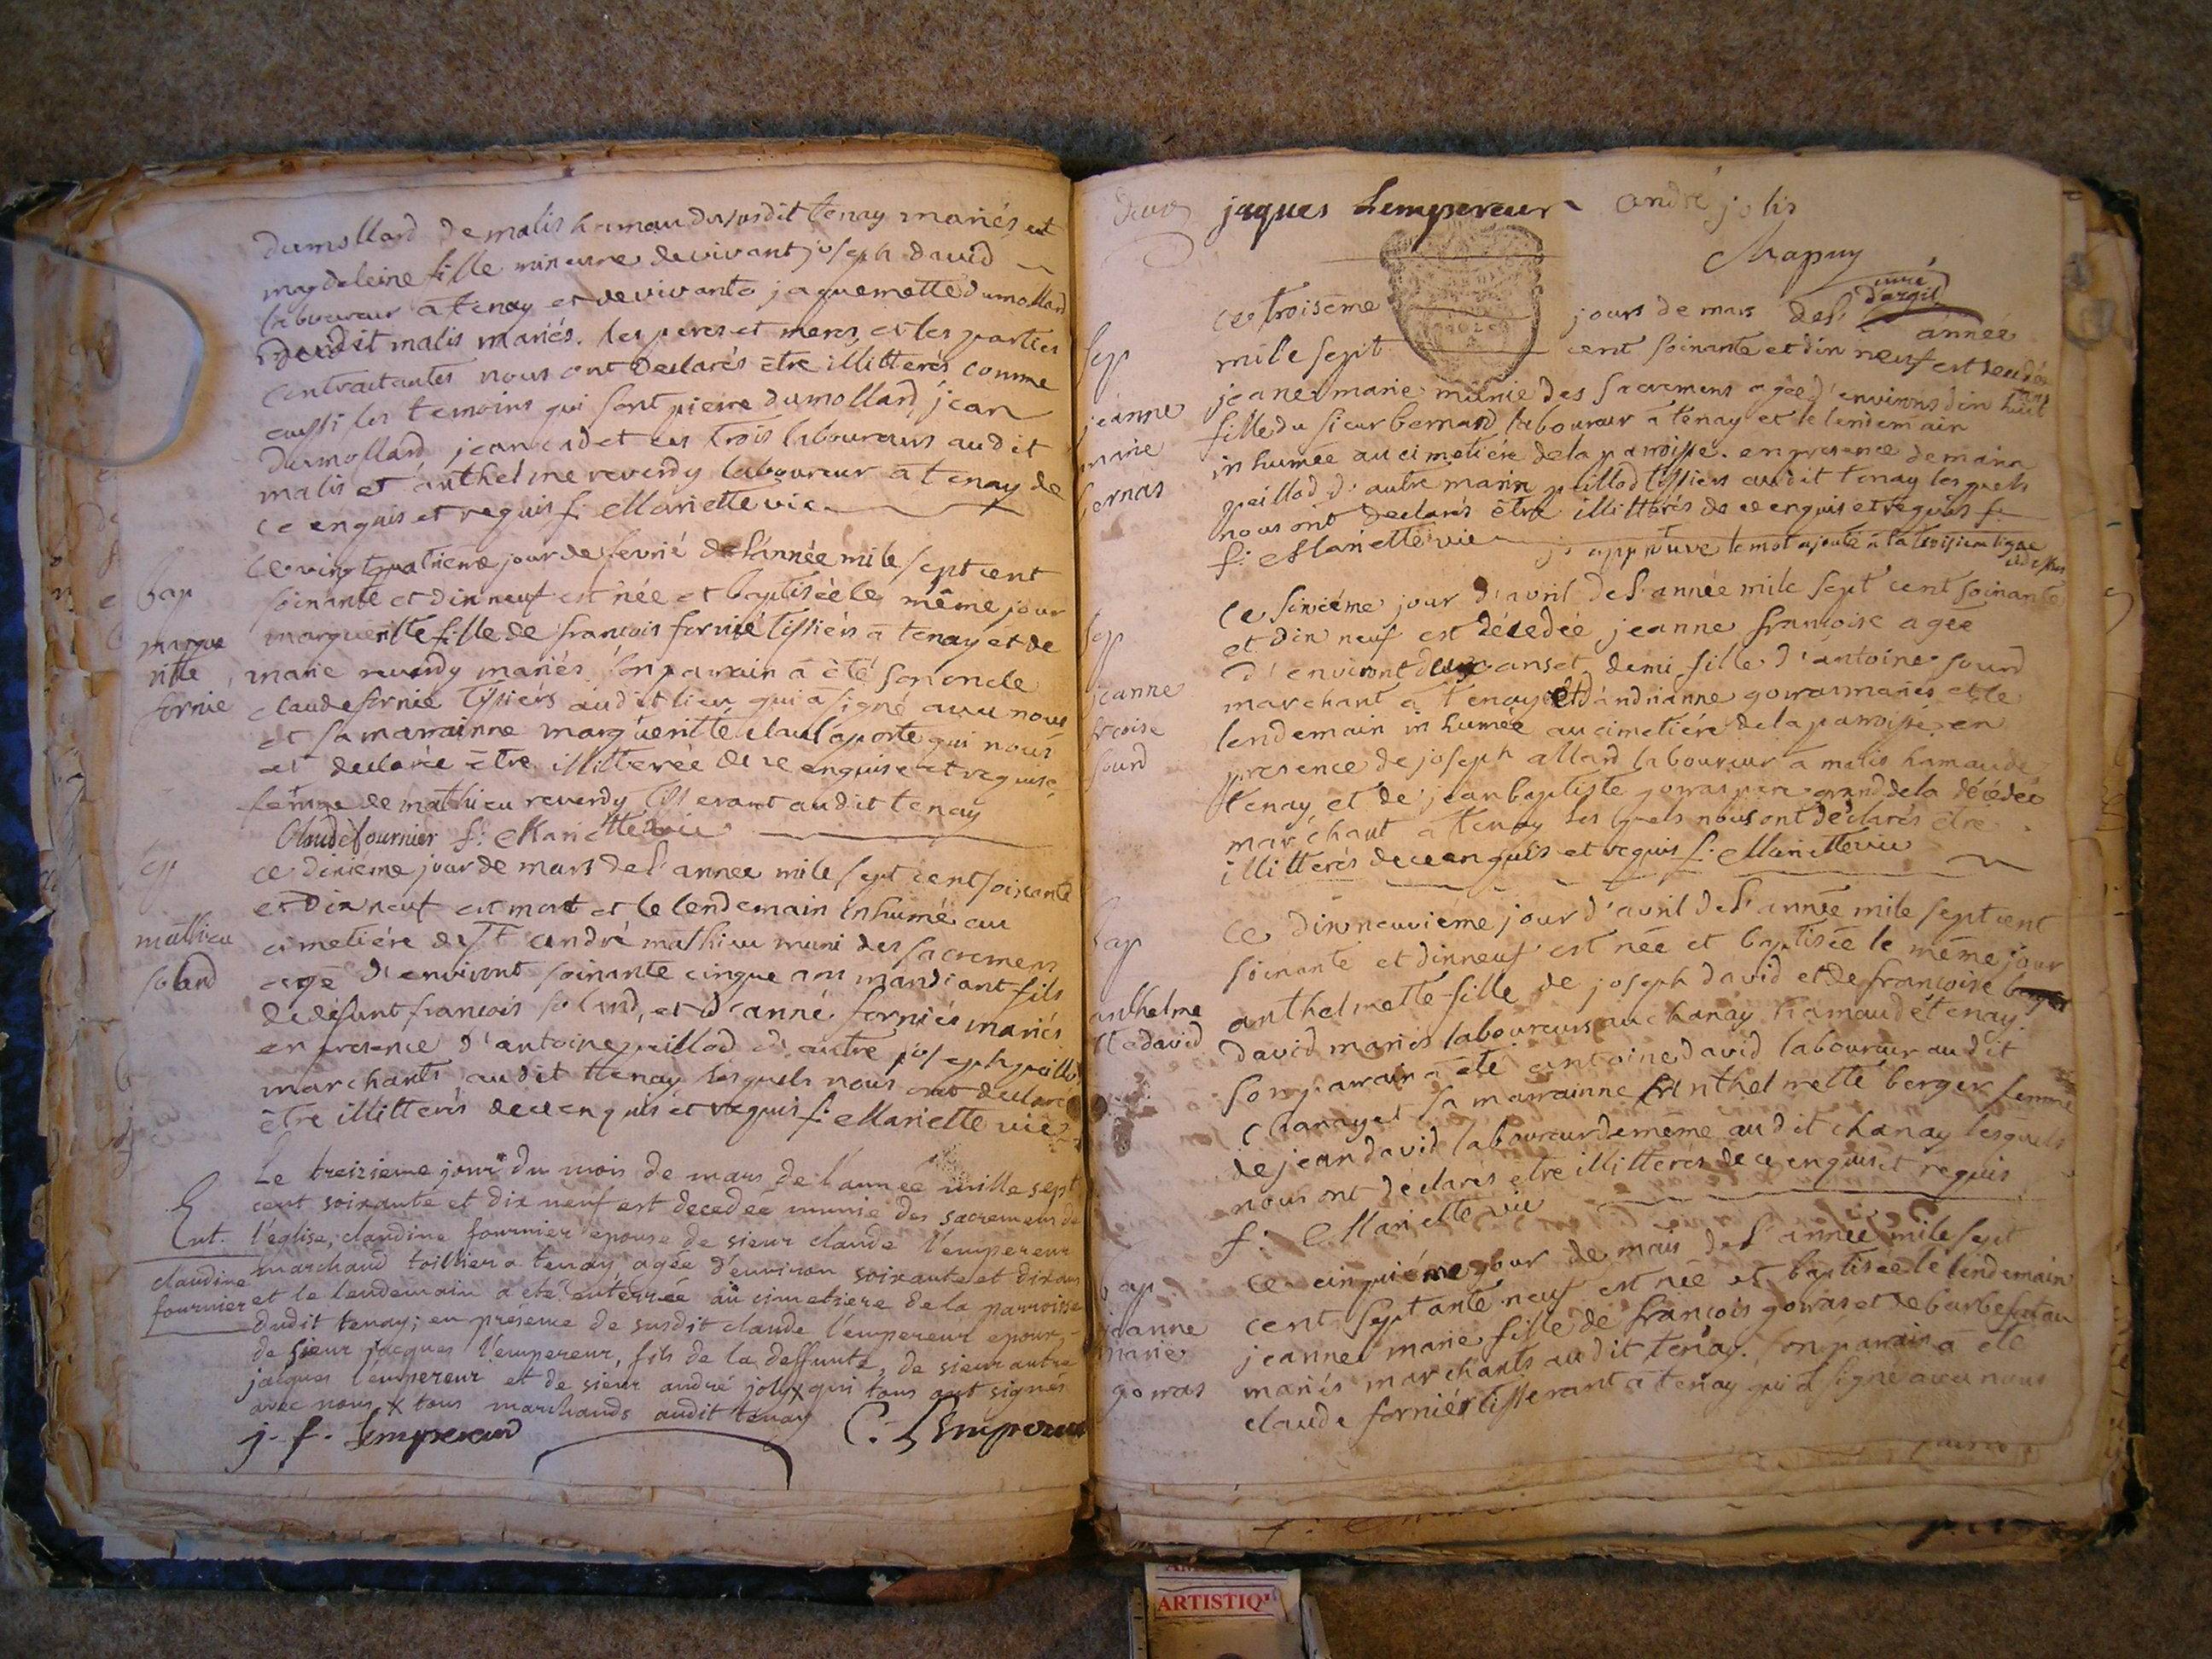 dumollard de malis hamau du susdit tenay mariés, et
magdeleine fille mineure de vivant joseph david
laboureur a tenay et de vivante jaquemette dumollard
dudit malis mariés. les peres et meres et les parties
contractantes nous ont declarés être illitterés comme
aussi les temoins qui sont pierre dumollard, jean
dumollard jean cadet tous trois laboureurs audit
malis et anthelme reverdy laboureur a tenay de
ce enquis et requis f: Mariette vic
ce vingtquatrieme jour de fevrié de l'année mile sept cent
bap
soinante et dinneuf est née et baptisée le même jour
margue
ritte
fornie
margueritte fille de francois fornié tissiers a tenay et de
marie reverdy mariés son parrain a été son oncle
claude fornié tissiers audit lieu qui a signé avec nous
et sa marrainne margueritte laporte qui nous
at declarée être illitterée de ce enquise et requise
femme de mathieu reverdy tisserant audit tenay
Claude fournier f: Mariette vic
ce dixieme jour de mars de l'année mile sept cent soixante
sep
et dix neuf est mort et le lendemain inhumé au
mathieu
soland
cimetiére de St andré mathieu muni des sacremens
agé d'environt soinante cinque ans mandiant fils
de défunt francois soland, et d'anne forniés mariés
en presence d'antoine quillod d'autre joseph quillod
marchants audit tenay lesquels nous ont declarés
être illitterés de ce enquis et requis f: Mariette vic
Le treizieme jour du mois de mars de l'année mille sept
cent soixante et dix neuf est decedée munie des sacremens de
Ent.
l'église, claudine fournier epouse de sieur claude l'empereur
marchand toillier a tenay agée d'environ soixante et dix ans
claudine
fournier
et le lendemain a été enterrée au cimetiere de la parroisse
dudit tenay; en présence de susdit claude l'empereur epoux,
de sieur jacques l'empereur, fils de la deffunte, de sieur autre
jacques l'empereur et de sieur andré joly x qui tous ont signés
avec nous x tous marchands audit tenay
j. f. Lempereur C. Lempereur
jaques Lempereur andré jolis
Mapuy
curé
d'argil
ce troiseme jours de mars de l' année
sep
mile sept cent soinante et din neuf est decedée
jeanne
marie
bernas
jeane marie munie des sacremens agée d'environs din huit ans
fille du sieur bernard laboureur a tenay et le lendemain
inhumée au cimetiére de la parroisse. en presence de marin
quillod d'autre marin quillod tissiers audit tenay lesquels
nous ont declarés être illitterés de ce enquis et requis f:
f: Mariette vic j'approuve le mot ajouté a la troisieme ligne
ci dessus
ce sinxiéme jour d'avril de l'année mile sept cent soinante
sep
et din neuf est décedée jeanne francoise agée
d'environt deux ans et demi fille d'antoine sourd
jeanne
frcoise
sourd
marchant a tenay et d'andrianne gouras mariés et le
lendemain inhumée au cimetiére de la parroisse en
presence de joseph allard laboureur a malis hamau de
tenay et de jean baptiste gouras pere grand de la décédée
marchant a tenay lesquels nous ont déclarés être
illitterés de ce enquis et requis f: Mariette vic
ce dinneuviéme jour d'avril de l'année mile sept cent
bap
soinante et dinneuf est née et baptisée le même jour
anthelme
tte david
anthelmette fille de joseph david et de francoise
david mariés laboureurs au chanay hamau de tenay.
son parrain a été antoine david laboureur audit
chanay et sa marrainne anthelmette berger femme
de jean david laboureur de même audit chanay lesquels
nous ont déclarés être illitterés de ce enquis et requis
f: Mariette vic
ce cinquiéme jour de mais de l'année mile sept
bap
cent septante neuf est née et baptisée le lendemain
jeanne
marie
gouras
jeanne marie fille de francois gouras et de barbe
mariés marchants audit tenay. son parrain a été
claude forniér tisserant a tenay qui a signé avec nous
ARTISTIQ